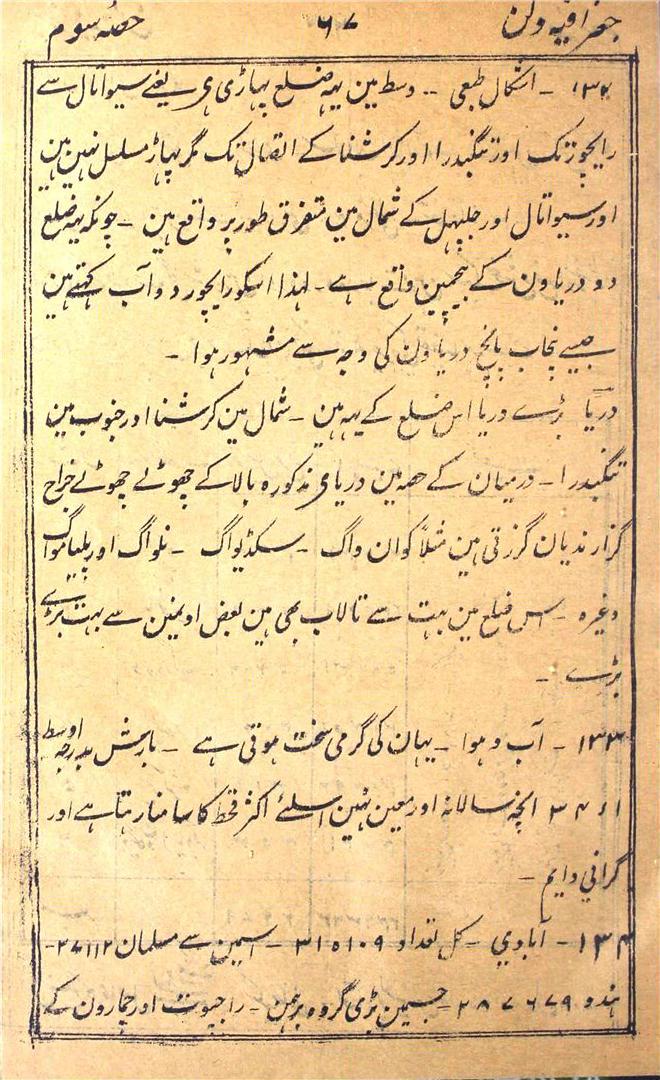 جغرافیہ دکن ۶۷ حصہ سوم
۱۳۲ ۔ اشکال طبعی ۔۔ وسط مین یہہ ضلع پہاڑی ہی یعنے سیواتال سے
رایچور تک اور تنگبدرا اور کرشنا کے اتصال تک مگر پہاڑ مسلسل نہین ہین
اور سیواتال اور جلپہل کے شمال مین متفرق طور پر واقع ہین ۔ چونکہ یہہ ضلع
دو دریاون کے بیچمین واقع ہے ۔ لہذا اسکو رایچور دوآب کہتے ہین
جیسے پنجاب پانچ دریاون کی وجہ سے مشہور ہوا ۔
دریا بڑے دریا اس ضلع کے یہہ ہین ۔ شمال مین کرشنا اور جنوب مین
تنگبدرا ۔ درمیان کے حصہ مین دریای مذکورہ بالا کے چھوٹے چھوٹے خراج
گزار ندیان گزرتی ہین مثلاً کوان واگ ۔ سکڈیواگ ۔ نلواگ اور
وغیرہ ۔ اس ضلع مین بہت سے تالاب بھی ہین بعض اونمین سے بہت بڑے
بڑے ۔
۱۳۳ ۔ آب و ہوا ۔ یہان کی گرمی سخت ہوتی ہے ۔ بارش بدرجہ اوسط
انچہ سالانہ اور معین نہین اسلئے اکثر قحط کا سامنا رہتا ہے اور
گرانی دایم ۔
۱۳۴ ۔ آبادی ۔ کل تعداد ۳۱۵۱۰۹ ۔ اسمین سے مسلمان ۲۷۱۱۲ ۔
ہندو ۲۸۷۶۷۹ ۔ جسمین بڑی گروہ برہمن ۔ راجپوت اور چمارون کے